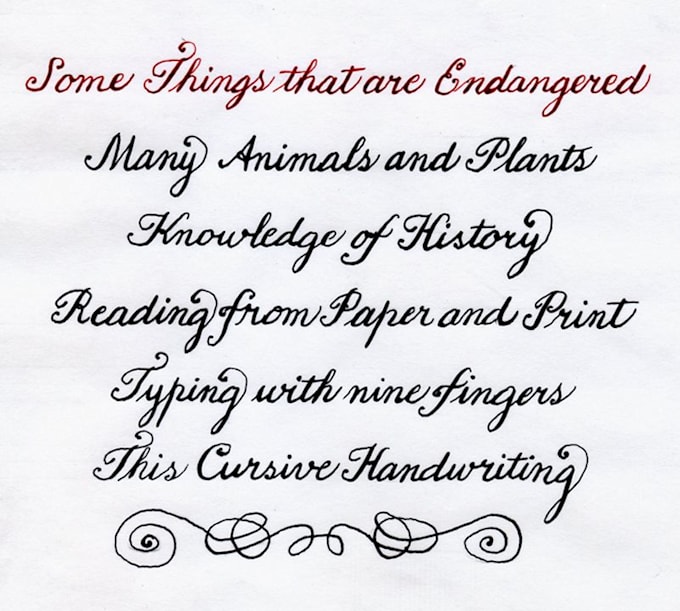 Some Things that are Endangered
Many Animals and Plants
Knowledge of History
Reading from Paper and Print
Typing with nine fingers
This Cursive Handwriting